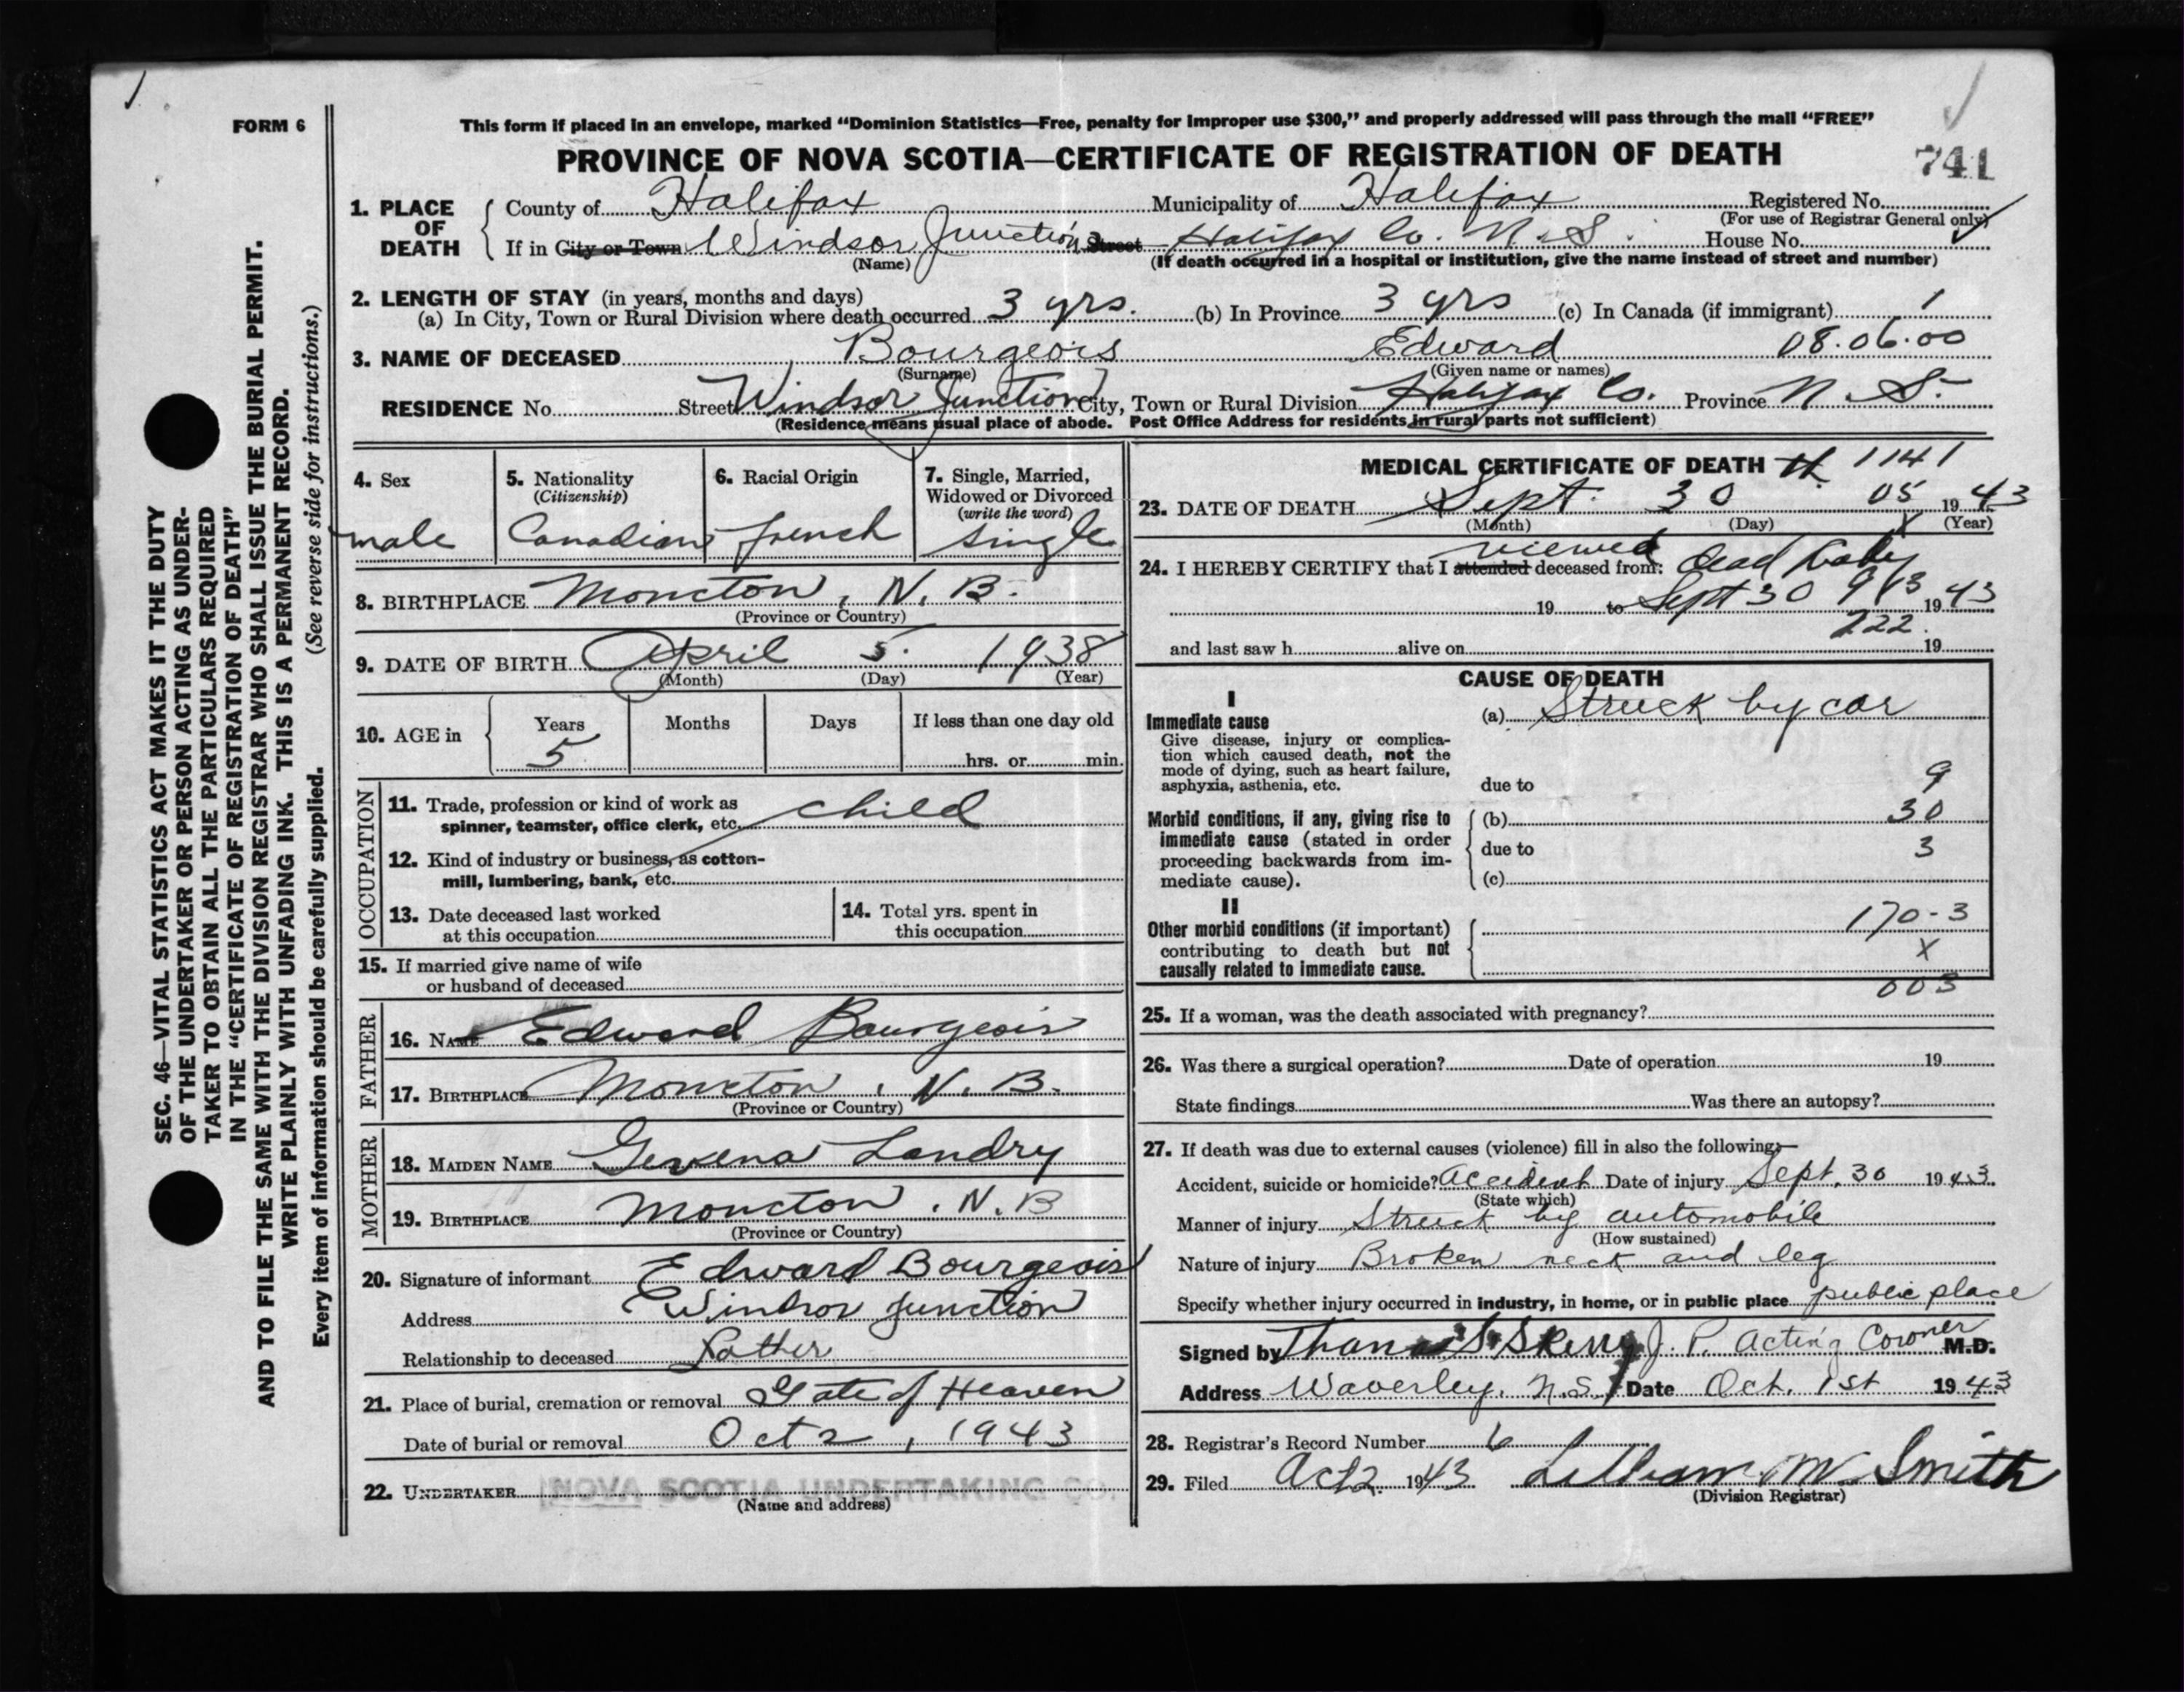 FORM 6
This form if placed in an envelope, marked “Dominion Statistics—Free, penalty for improper use $300,” and properly addressed will pass through the mail “FREE”
PROVINCE OF NOVA SCOTIA—CERTIFICATE OF REGISTRATION OF DEATH
741
1. PLACE OF DEATH
County of Halifax Municipality of Halifax Registered No.
(For use of Registrar General only)
If in City or Town Windsor Junction Street Halifax Co. N.S. House No.
(Name) (If death occurred in a hospital or institution, give the name instead of street and number)
2. LENGTH OF STAY (in years, months and days)
(a) In City, Town or Rural Division where death occurred 3 yrs. (b) In Province 3 yrs (c) In Canada (if immigrant) 1
3. NAME OF DECEASED Bourgeois Edward 08.06.00
(Surname) (Given name or names)
RESIDENCE No. Street Windsor Junction City, Town or Rural Division Halifax Co. Province N.S.
(Residence means usual place of abode. Post Office Address for residents in rural parts not sufficient)
4. Sex
male
5. Nationality
(Citizenship)
Canadian
6. Racial Origin
french
7. Single, Married,
Widowed or Divorced
(write the word)
single
8. BIRTHPLACE Moncton, N. B.
(Province or Country)
9. DATE OF BIRTH April 5. 1938
(Month) (Day) (Year)
10. AGE in
Years Months Days If less than one day old
5 hrs. or min.
OCCUPATION
11. Trade, profession or kind of work as
spinner, teamster, office clerk, etc. child
12. Kind of industry or business, as cotton-
mill, lumbering, bank, etc.
13. Date deceased last worked
at this occupation
14. Total yrs. spent in
this occupation
15. If married give name of wife
or husband of deceased
FATHER
16. NAME Edward Bourgeois
17. BIRTHPLACE Moncton, N. B.
(Province or Country)
MOTHER
18. MAIDEN NAME Landry
19. BIRTHPLACE Moncton, N. B
(Province or Country)
20. Signature of informant Edward Bourgeois
Address Windsor Junction
Relationship to deceased Father
21. Place of burial, cremation or removal Gate of Heaven
Date of burial or removal Oct 2, 1943
22. UNDERTAKER NOVA SCOTIA UNDERTAKING CO.
(Name and address)
MEDICAL CERTIFICATE OF DEATH 1141
23. DATE OF DEATH Sept. 30 05 1943
(Month) (Day) (Year)
X
viewed
24. I HEREBY CERTIFY that I attended deceased from: dead baby
19 to Sept 30 913 1943
222.
and last saw h alive on 19
CAUSE OF DEATH
I
Immediate cause
Give disease, injury or complica-
tion which caused death, not the
mode of dying, such as heart failure,
asphyxia, asthenia, etc.
(a) Struck by car
due to 9
Morbid conditions, if any, giving rise to
immediate cause (stated in order
proceeding backwards from im-
mediate cause).
(b) 30
due to 3
(c)
II
Other morbid conditions (if important)
contributing to death but not
causally related to immediate cause.
170-3
X
003
25. If a woman, was the death associated with pregnancy?
26. Was there a surgical operation? Date of operation 19
State findings Was there an autopsy?
27. If death was due to external causes (violence) fill in also the following:—
Accident, suicide or homicide? Accident Date of injury Sept. 30 1943
(State which)
Manner of injury Struck by automobile
(How sustained)
Nature of injury Broken neck and leg
Specify whether injury occurred in industry, in home, or in public place public place
Signed by J. P. Acting Coroner M.D.
Address Waverley, N.S. Date Oct. 1st 1943
28. Registrar's Record Number 6
29. Filed Oct 2. 1943 Lillian M. Smith
(Division Registrar)
SEC. 46—VITAL STATISTICS ACT MAKES IT THE DUTY
OF THE UNDERTAKER OR PERSON ACTING AS UNDER-
TAKER TO OBTAIN ALL THE PARTICULARS REQUIRED
IN THE “CERTIFICATE OF REGISTRATION OF DEATH”
AND TO FILE THE SAME WITH THE DIVISION REGISTRAR WHO SHALL ISSUE THE BURIAL PERMIT.
WRITE PLAINLY WITH UNFADING INK. THIS IS A PERMANENT RECORD.
Every item of information should be carefully supplied. (See reverse side for instructions.)